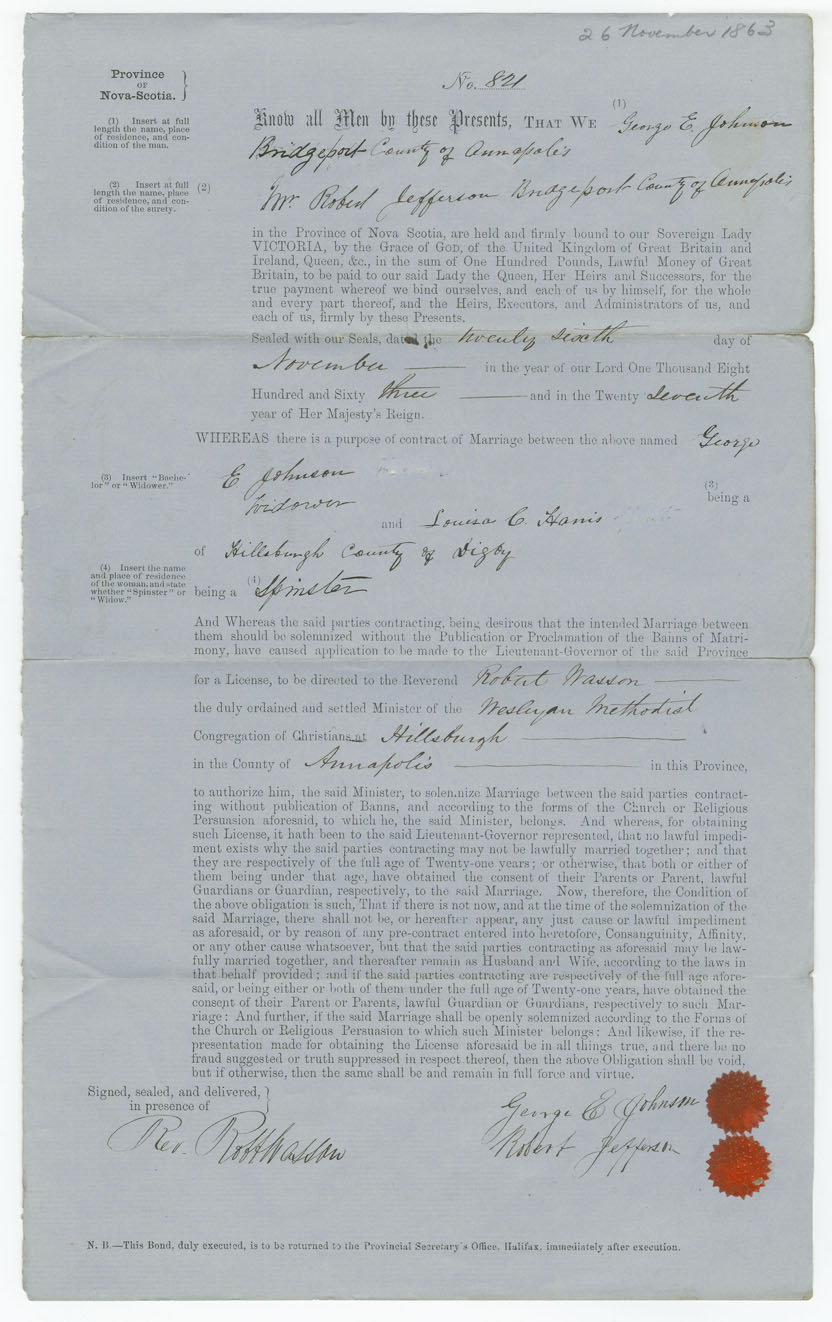 26 November 1863
Province
OF
Nova-Scotia. }
No. 821
(1) Insert at full
length the name, place
of residence, and con-
dition of the man.
(1)
Know all Men by these Presents, THAT WE George E. Johnson
Bridgeport County of Annapolis
(2) Insert at full
length the name, place
of residence, and con-
dition of the surety.
(2) Mr. Robert Jefferson Bridgeport County of Annapolis
in the Province of Nova Scotia, are held and firmly bound to our Sovereign Lady
VICTORIA, by the Grace of GOD, of the United Kingdom of Great Britain and
Ireland, Queen, &c., in the sum of One Hundred Pounds, Lawful Money of Great
Britain, to be paid to our said Lady the Queen, Her Heirs and Successors, for the
true payment whereof we bind ourselves, and each of us by himself, for the whole
and every part thereof, and the Heirs, Executors, and Administrators of us, and
each of us, firmly by these Presents.
Sealed with our Seals, dated the twenty sixth day of
November in the year of our Lord One Thousand Eight
Hundred and Sixty three and in the Twenty Seventh
year of Her Majesty's Reign.
WHEREAS there is a purpose of contract of Marriage between the above named George
(3) Insert "Bache-
lor" or "Widower."
E Johnson
(3)
being a
Widower
and Louisa C. Harris
of Hillsburgh County of Digby
(4) Insert the name
and place of residence
of the woman, and state
whether "Spinster" or
"Widow."
being a (4) Spinster
And Whereas the said parties contracting, being desirous that the intended Marriage between
them should be solemnized without the Publication or Proclamation of the Banns of Matri-
mony, have caused application to be made to the Lieutenant-Governor of the said Province
for a License, to be directed to the Reverend Robert Wasson
the duly ordained and settled Minister of the Wesleyan Methodist
Congregation of Christians at Hillsburgh
in the County of Annapolis in this Province,
to authorize him, the said Minister, to solemnize Marriage between the said parties contract-
ing without publication of Banns, and according to the forms of the Church or Religious
Persuasion aforesaid, to which he, the said Minister, belongs. And whereas, for obtaining
such License, it hath been to the said Lieutenant-Governor represented, that no lawful impedi-
ment exists why the said parties contracting may not be lawfully married together; and that
they are respectively of the full age of Twenty-one years; or otherwise, that both or either of
them being under that age, have obtained the consent of their Parents or Parent, lawful
Guardians or Guardian, respectively, to the said Marriage. Now, therefore, the Condition of
the above obligation is such, That if there is not now, and at the time of the solemnization of the
said Marriage, there shall not be, or hereafter appear, any just cause or lawful impediment
as aforesaid, or by reason of any pre-contract entered into heretofore, Consanguinity, Affinity,
or any other cause whatsoever, but that the said parties contracting as aforesaid may be law-
fully married together, and thereafter remain as Husband and Wife, according to the laws in
that behalf provided; and if the said parties contracting are respectively of the full age afore-
said, or being either or both of them under the full age of Twenty-one years, have obtained the
consent of their Parent or Parents, lawful Guardian or Guardians, respectively to such Mar-
riage: And further, if the said Marriage shall be openly solemnized according to the Forms of
the Church or Religious Persuasion to which such Minister belongs: And likewise, if the re-
presentation made for obtaining the License aforesaid be in all things true, and there be no
fraud suggested or truth suppressed in respect thereof, then the above Obligation shall be void,
but if otherwise, then the same shall be and remain in full force and virtue.
Signed, sealed, and delivered, }
in presence of
George E Johnson
Rev. Robt Wasson
Robert Jefferson
N. B.—This Bond, duly executed, is to be returned to the Provincial Secretary's Office, Halifax, immediately after execution.